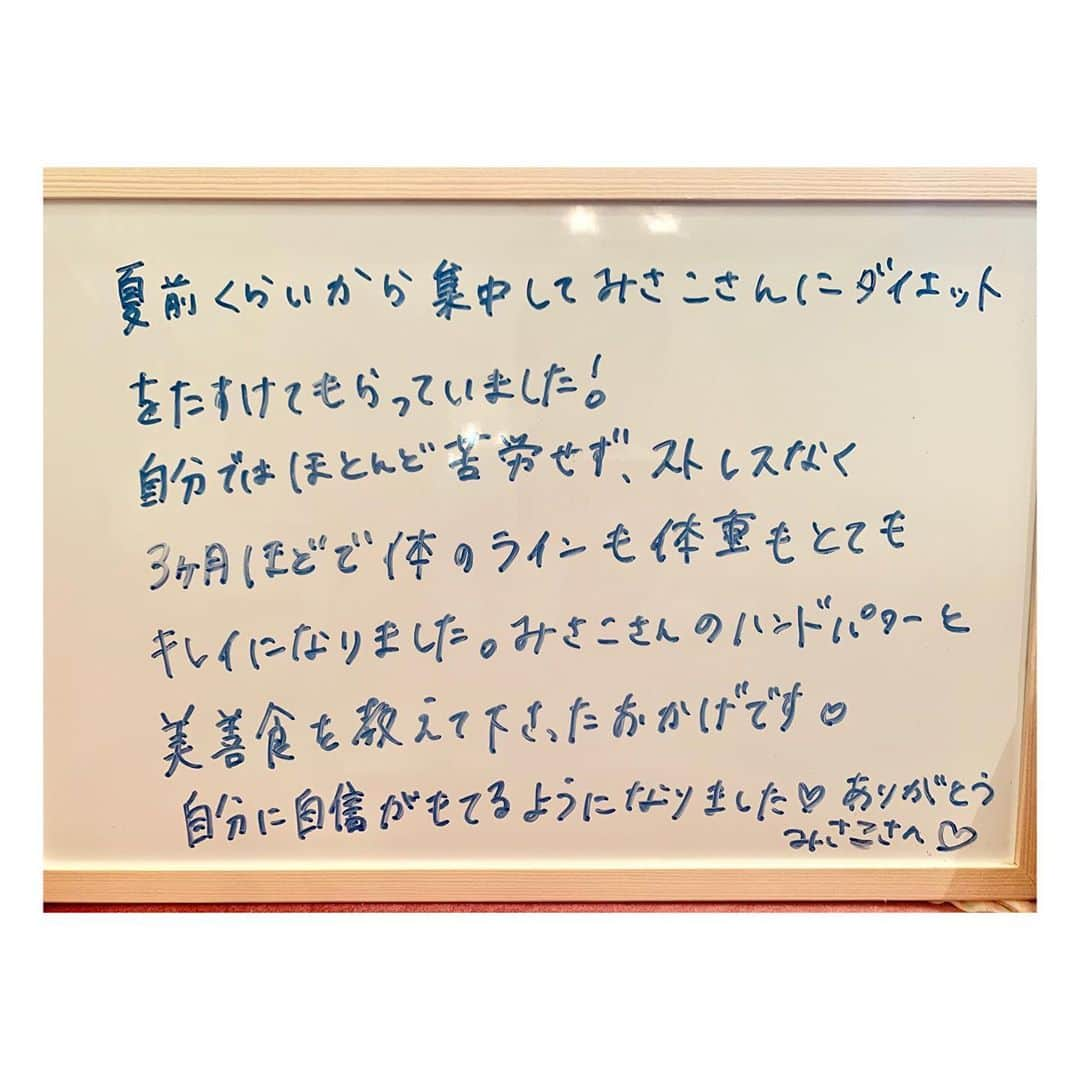 夏前くらいから集中してみさこさんにダイエット
をたすけてもらっていました！
自分ではほとんど苦労せず、ストレスなく
3ヶ月ほどで体のラインも体重もとても
キレイになりました。みさこさんのハンドパワーと
美善食を教えて下さったおかげです♡
自分に自信がもてるようになりました♡ありがとう
みさこさん♡